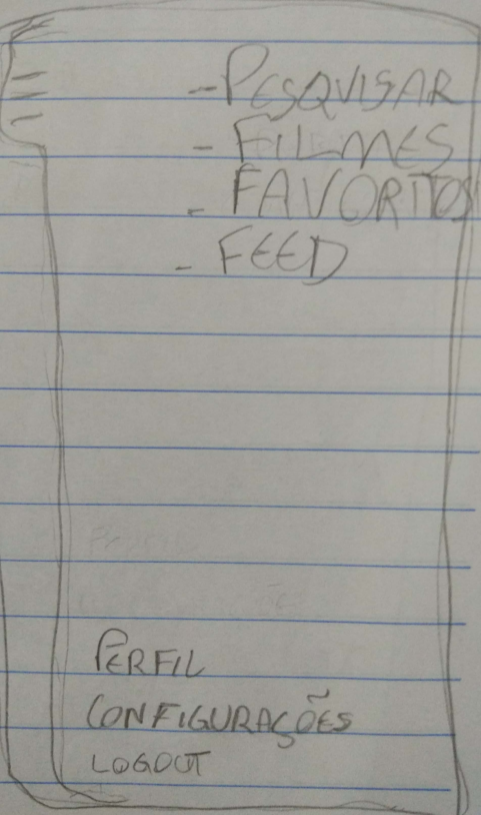 - PESQUISAR
- FILMES
- FAVORITOS
- FEED
PERFIL
CONFIGURAÇÕES
LOGOUT